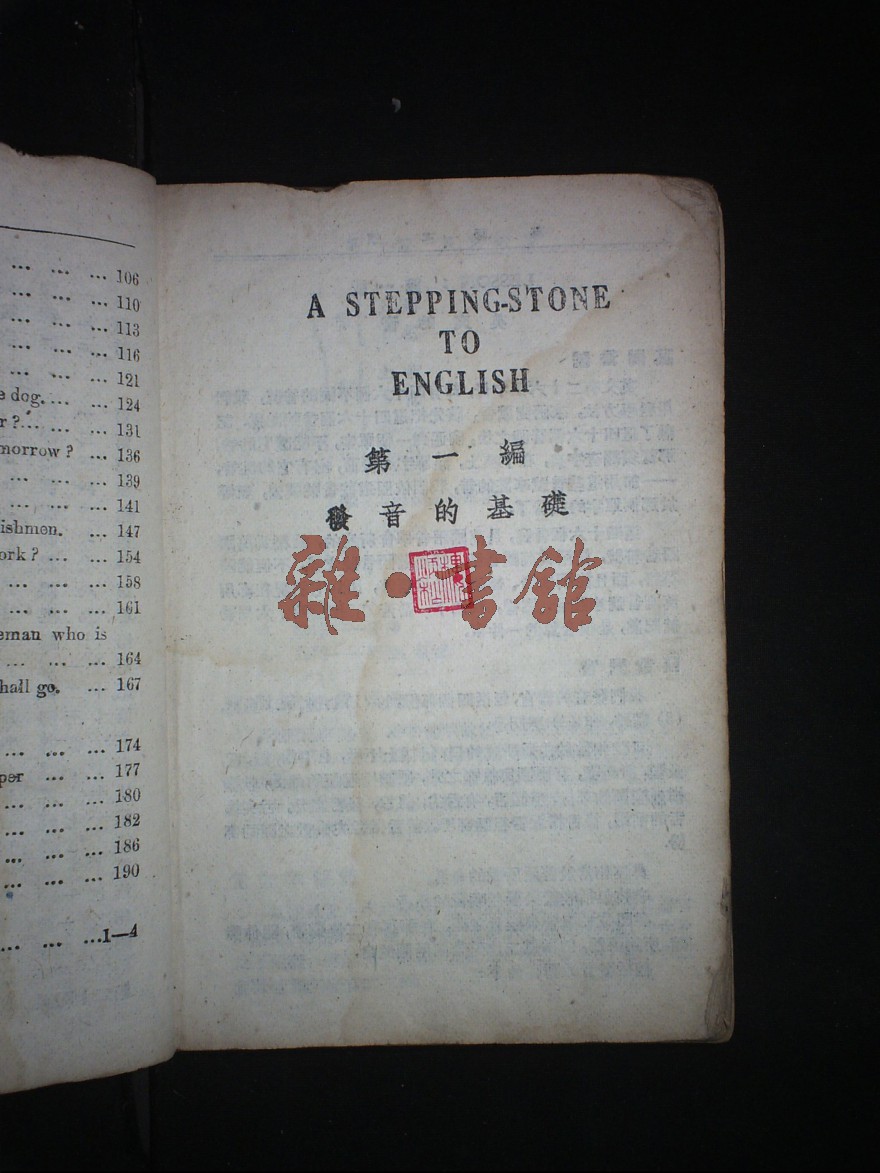 ... ... ... 106
... ... ... 110
... ... ... 113
... ... ... 116
... ... ... 121
e dog. ... ... 124
r ?... ... ... 131
morrow ? ... 136
... ... ... 139
... ... ... 141
ishmen. ... 147
ork ? ... ... 154
... ... ... 158
... ... ... 161
eman who is
... ... ... 164
hall go. ... 167
... ... ... 174
per ... ... 177
... ... ... 180
... ... ... 182
... ... ... 186
... ... ... 190
... ... ...1—4
A STEPPING-STONE
TO
ENGLISH
第一編
發音的基礎
雜·書館